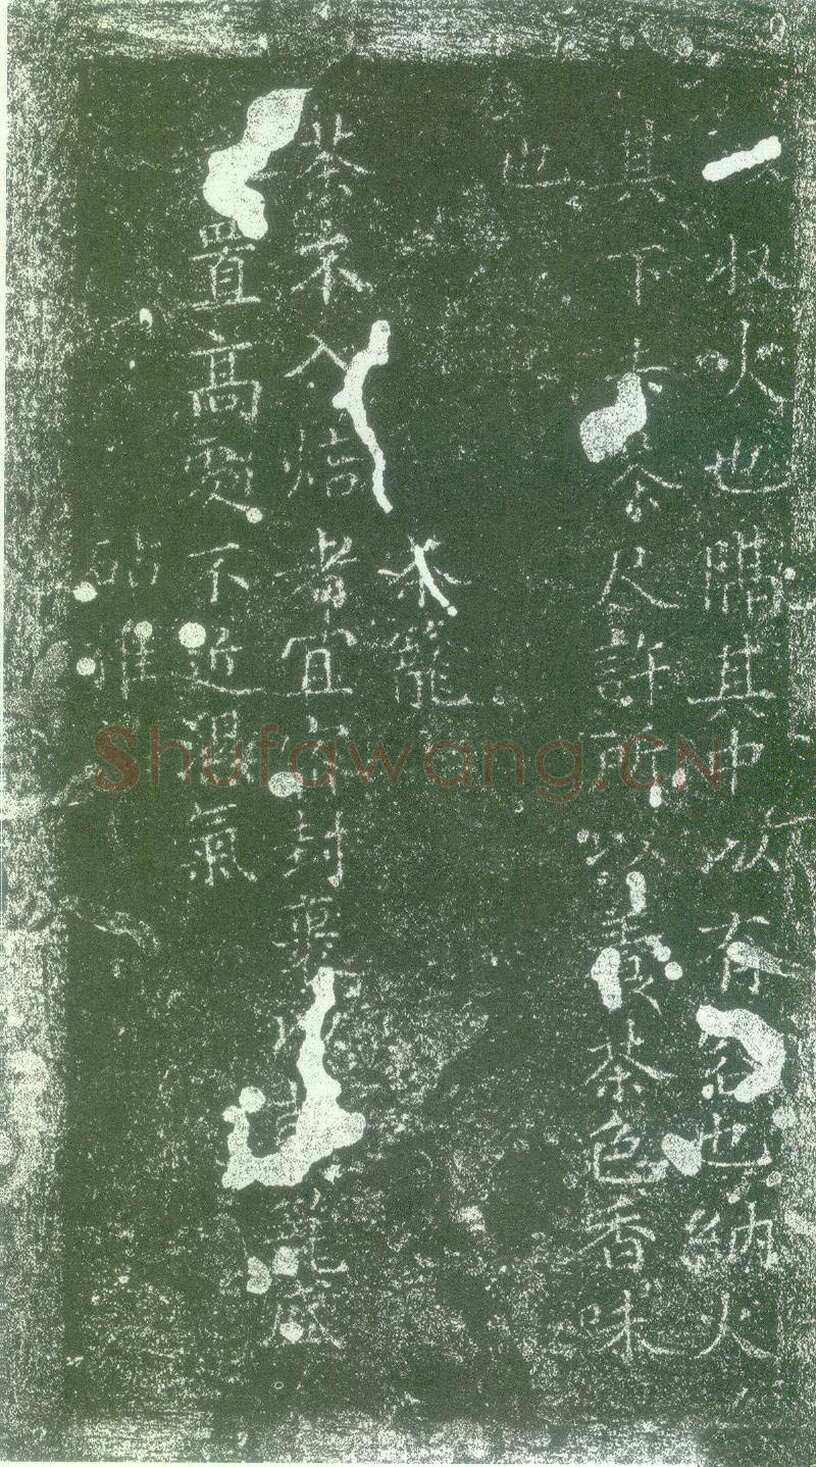 収火也隔其中以有容也納火
其下去茶尺許所以養茶色香味
也
茶籠
茶不入焙者宜密封裹以籠盛
置高處不近濕氣
砧椎
Shufawang.CN